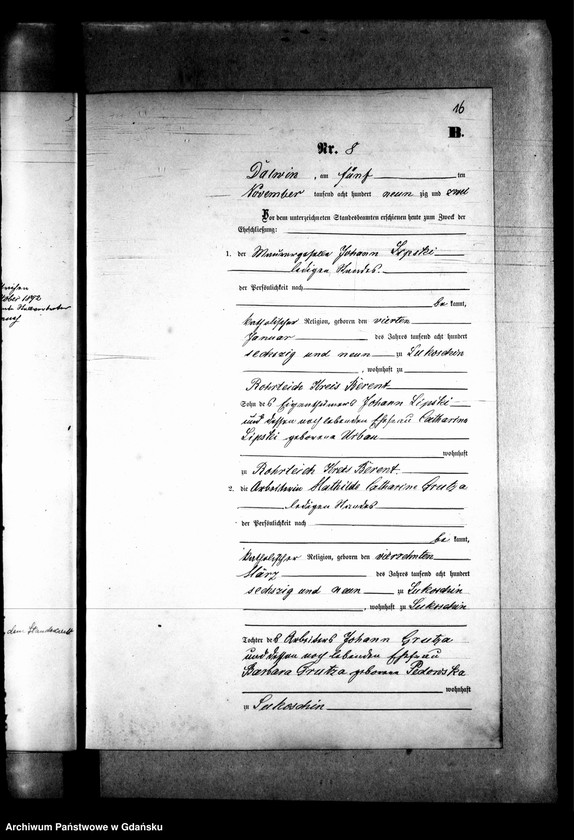 16
B.
Nr. 8
Dalwin, am fünf ten
November tausend acht hundert neun zig und zwei
Vor dem unterzeichneten Standesbeamten erschienen heute zum Zweck der
Eheschließung:
1. der Maurergeselle Johann Lipski
ledigen Standes.
der Persönlichkeit nach
be kannt,
katholischer Religion, geboren den vierten
Januar des Jahres tausend acht hundert
sechszig und neun zu Lukoschin
, wohnhaft zu
Rohrteich Kreis Berent
Sohn des Eigenthümers Johann Lipski
und dessen noch lebenden Ehefrau Catharina
Lipski geborene Urban
wohnhaft
zu Rohrteich Kreis Berent.
2. die Arbeiterin Mathilde Catharina Grutza
ledigen Standes
der Persönlichkeit nach
be kannt,
katholischer Religion, geboren den
März des Jahres tausend acht hundert
sechszig und neun zu Lukoschin
, wohnhaft zu Lukoschin
Tochter des Arbeiters Johann Grutza
und dessen noch lebenden Ehefrau
Barbara Grutza geborene
wohnhaft
zu Lukoschin
1892
den Standesamt
Archiwum Państwowe w Gdańsku